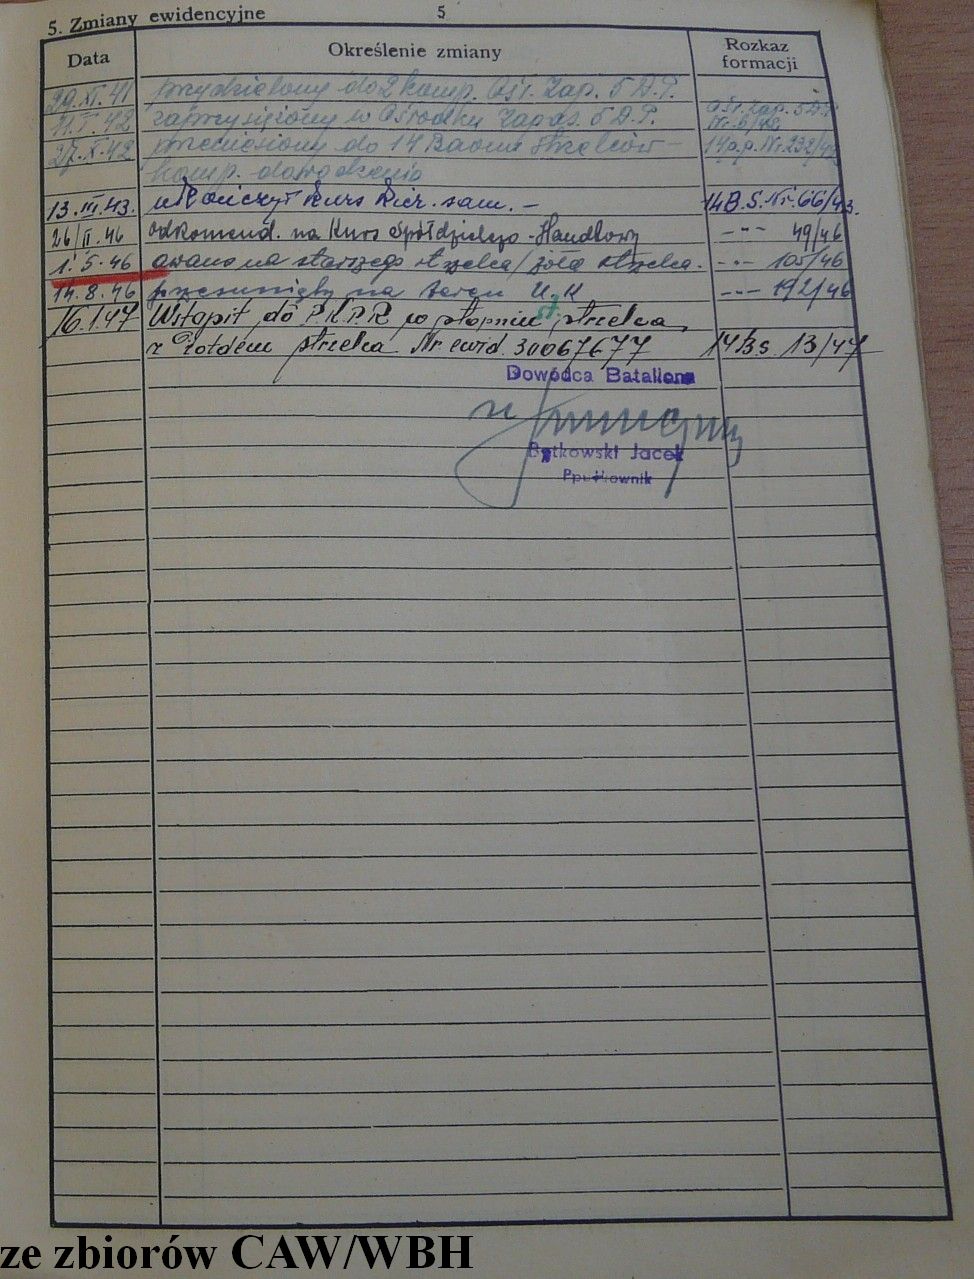 5. Zmiany ewidencyjne 5
Data Określenie zmiany Rozkaz formacji
29.XI.41 przydzielony do 2 komp. Ośr. Zap. 5 D.P.
11.I.42 zaprzysiężony w Ośrodku Zapas. 5 D.P. Ośr. Zap. 5 D.P. Nr.
27.X.42 przeniesiony do 14 Baonu Strzelców – 14 p.p. Nr. 232/42
komp. dowodzenia
13.III.43. ukończył kurs kier. sam. – 14 B.S. Nr. 66/43.
26/II.46 odkomend. na Kurs Spółdzielczo-Handlowy –"– 49/46
1.5.46 awans na starszego strzelca/żołd strzelca. –"– 105/46
14.8.46 przesunięty na teren U.K –"– 192/46
16.1.47 Wstąpił do P.K.P.R. po stopniu st. strzelca
z żołdem strzelca Nr ewid. 30067677 14 B.S. 13/47
Dowódca Batalionu
Bętkowski Jacek
Ppułkownik
ze zbiorów CAW/WBH